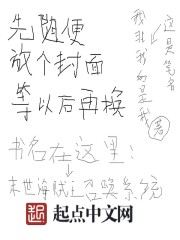 先随便
放个封面
等以后再换
这是笔名
我非我的是我
著
书名在这里：
末世海贼王召唤系统
起点中文网